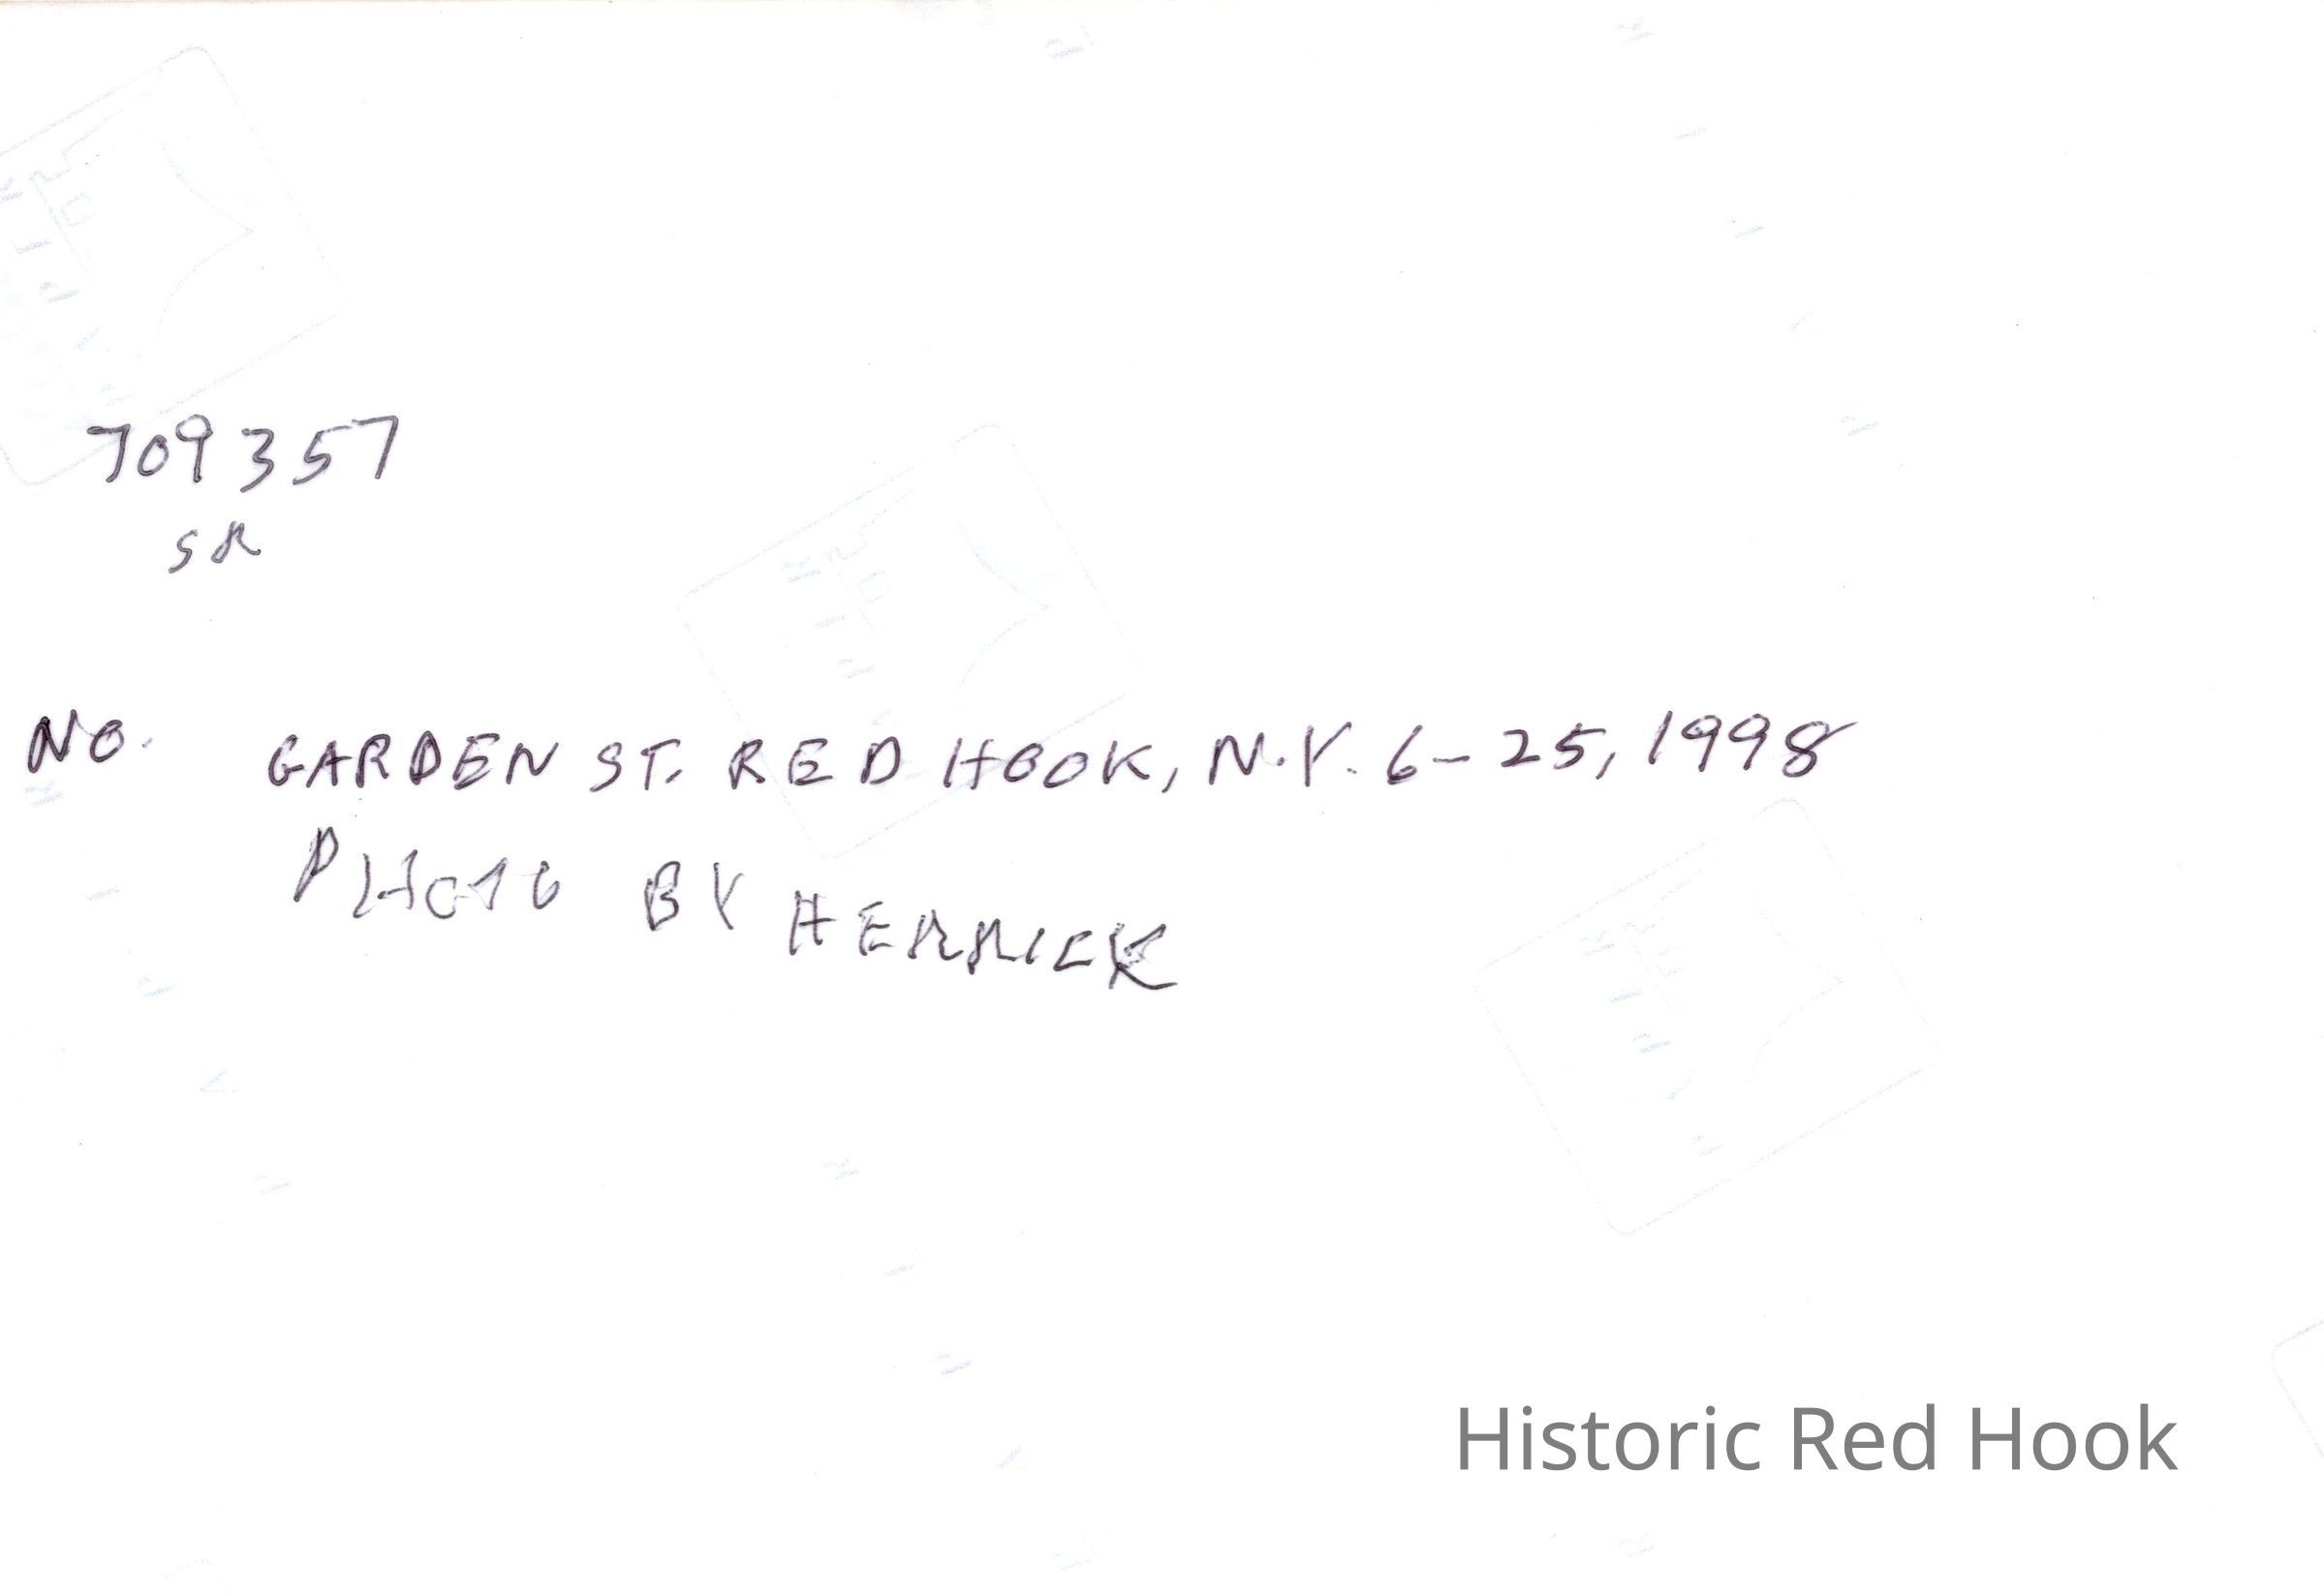 709357
SR
NO. GARDEN ST. RED HOOK, N.Y. 6-25, 1998
PHOTO BY HERRICK
Historic Red Hook